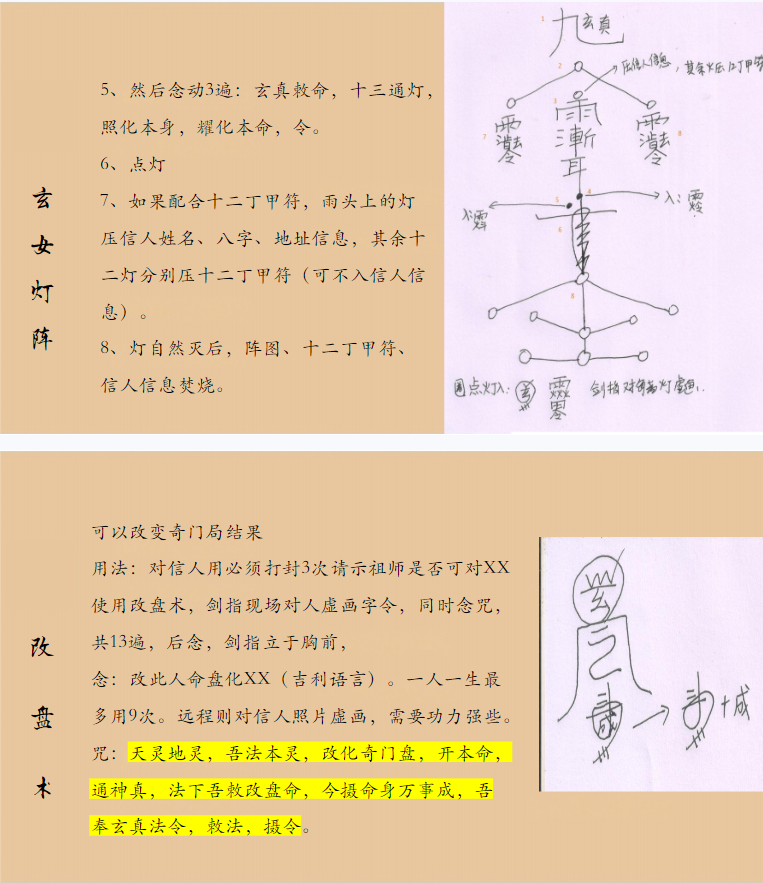 玄女灯阵
5、然后念动3遍：玄真敕命，十三通灯，
照化本身，耀化本命，令。
6、点灯
7、如果配合十二丁甲符，雨头上的灯
压信人姓名、八字、地址信息，其余十
二灯分别压十二丁甲符（可不入信人信
息）。
8、灯自然灭后，阵图、十二丁甲符、
信人信息焚烧。
1
玄真
2
压信人信息，其余火压12丁甲符
3
雨
漸
耳
7
8
4
5
入：
6
8
点灯入：
剑指对每盏灯虚画
改盘术
可以改变奇门局结果
用法：对信人用必须打封3次请示祖师是否可对XX
使用改盘术，剑指现场对人虚画字令，同时念咒，
共13遍，后念，剑指立于胸前，
念：改此人命盘化XX（吉利语言）。一人一生最
多用9次。远程则对信人照片虚画，需要功力强些。
咒：天灵地灵，吾法本灵，改化奇门盘，开本命，
通神真，法下吾敕改盘命，今摄命身万事成，吾
奉玄真法令，敕法，摄令。
+成